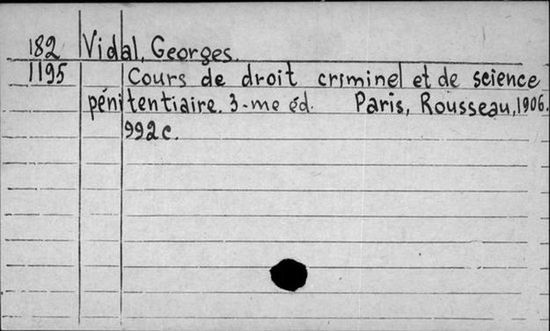 182 Vidal, Georges.
1195 Cours de droit criminel et de science
pénitentiaire. 3-me éd. Paris, Rousseau, 1906.
992 c.